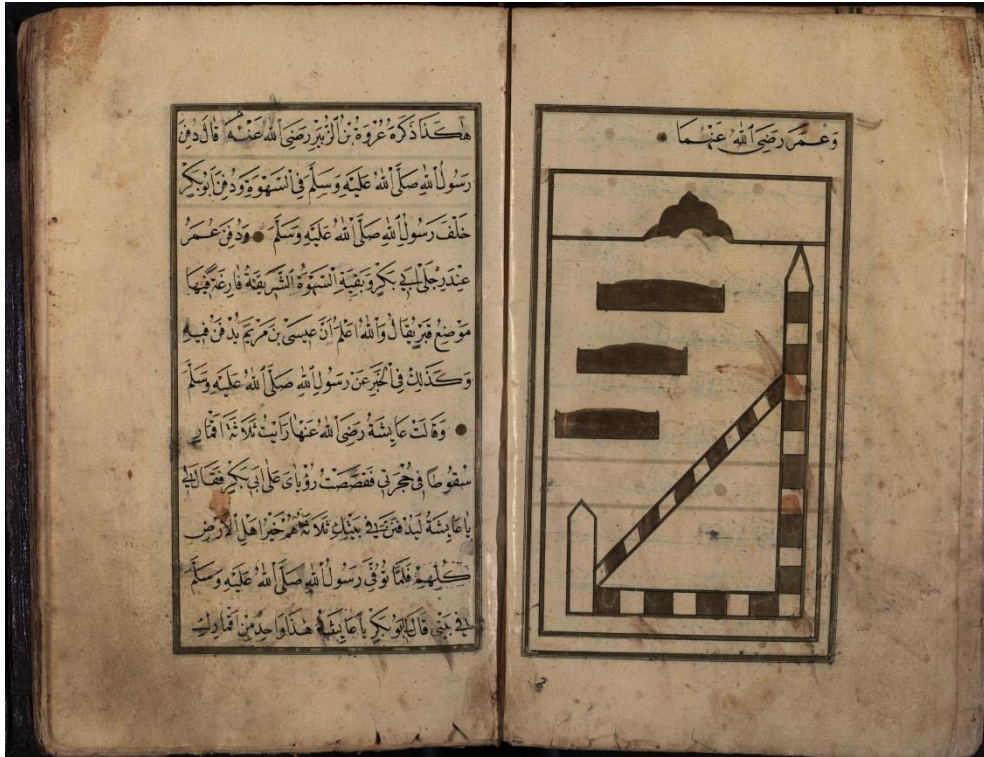 وَعُمَرَ رَضِيَ ٱللهُ عَنْهُمَا
هٰكَذَا ذَكَرَهُ عُرْوَةُ بْنُ ٱلزُّبَيْرِ رَضِيَ ٱللهُ عَنْهُ قَالَ دُفِنَ
رَسُولُ ٱللهِ صَلَّى ٱللهُ عَلَيْهِ وَسَلَّمَ فِي ٱلسَّهْوَةِ وَدُفِنَ اَبُوبَكْرٍ
خَلْفَ رَسُولِ ٱللهِ صَلَّى ٱللهُ عَلَيْهِ وَسَلَّمَ وَدُفِنَ عُمَرُ
عِنْدَ رِجْلَيْ اَبِي بَكْرٍ وَبَقِيَةِ ٱلسَّهْوَةُ ٱلشَّرِيفَةُ فَارِغَةً فِيهَا
مَوْضِعُ قَبْرٍ يُقَالُ وَٱللهُ اَعْلَمُ اَنَّ عِيسَى بْنَ مَرْيَمَ يُدْفَنُ فِيهِ
وَكَذٰلِكَ فِي ٱلْخَبَرِ عَنْ رَسُولِ ٱللهِ صَلَّى ٱللهُ عَلَيْهِ وَسَلَّمَ
وَقَالَتْ عَايِشَةُ رَضِيَ ٱللهُ عَنْهَا رَاَيْتُ ثَلَاثَةَ اَقْمَارٍ
سُقُوطًا فِي حُجْرَتِي فَقَصَصْتُ رُؤْيَايَ عَلَى اَبِي بَكْرٍ فَقَالَ لِي
يَا عَايِشَةُ لَيُدْفَنَنَّ فِي بَيْتِكِ ثَلَاثَةٌ هُمْ خَيْرُ اَهْلِ ٱلْاَرْضِ
كُلِّهِمْ فَلَمَّا تُوُفِّيَ رَسُولُ ٱللهِ صَلَّى ٱللهُ عَلَيْهِ وَسَلَّمَ
فِي بَيْتِي قَالَ لِي اَبُو بَكْرٍ يَا عَايِشَةُ هٰذَا وَاحِدٌ مِنْ اَقْمَارِكِ